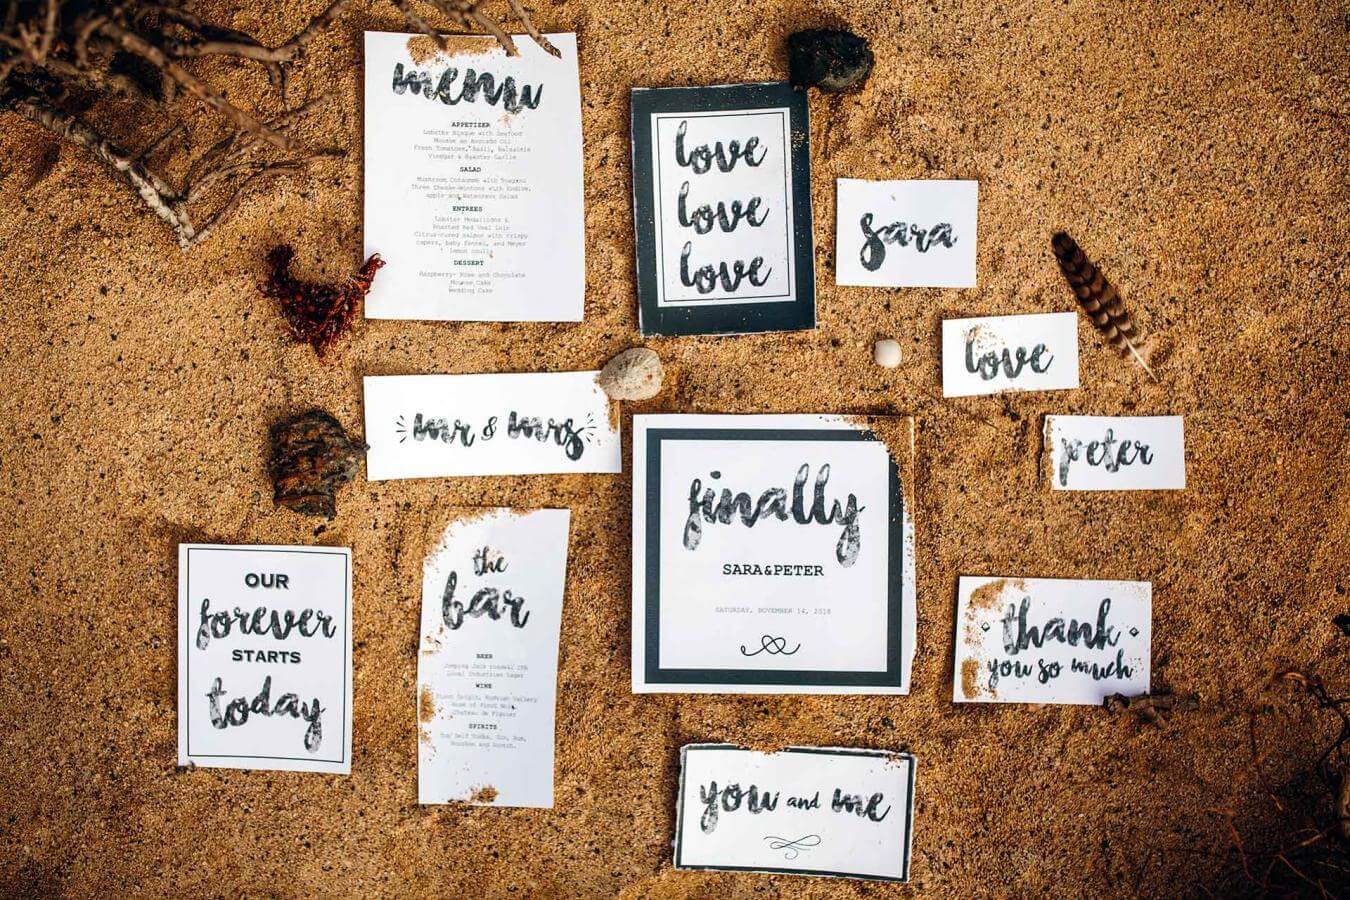 menu
APPETIZER
Lobster Bisque with Seafood
Mousse an Avocado Oil
Fresh Tomatoes, Basil, Balsamic
Vinegar & Roaster Garlic
SALAD
Mushroom Consommé with
Three Cheese Wontons with Endive,
apple and Watercress Salad
ENTREES
Lobster Medallions &
Roasted Red Veal Loin
Citrus-cured salmon with crispy
capers, baby fennel, and Meyer
lemon coulis
DESSERT
Raspberry- Rose and Chocolate
Mousse Cake
Wedding Cake
love
love
love
sara
love
mr & mrs
peter
finally
SARA&PETER
SATURDAY, NOVEMBER 14, 2018
OUR
forever
STARTS
today
the
bar
BEER
Jumping Jack IPA
Local Industries Lager
WINE
Pinot Grigio, Valley
House of Pinot
Chateau de
SPIRITS
Top Self Vodka, Gin, Rum,
Bourbon and Scotch.
thank
you so much
you and me